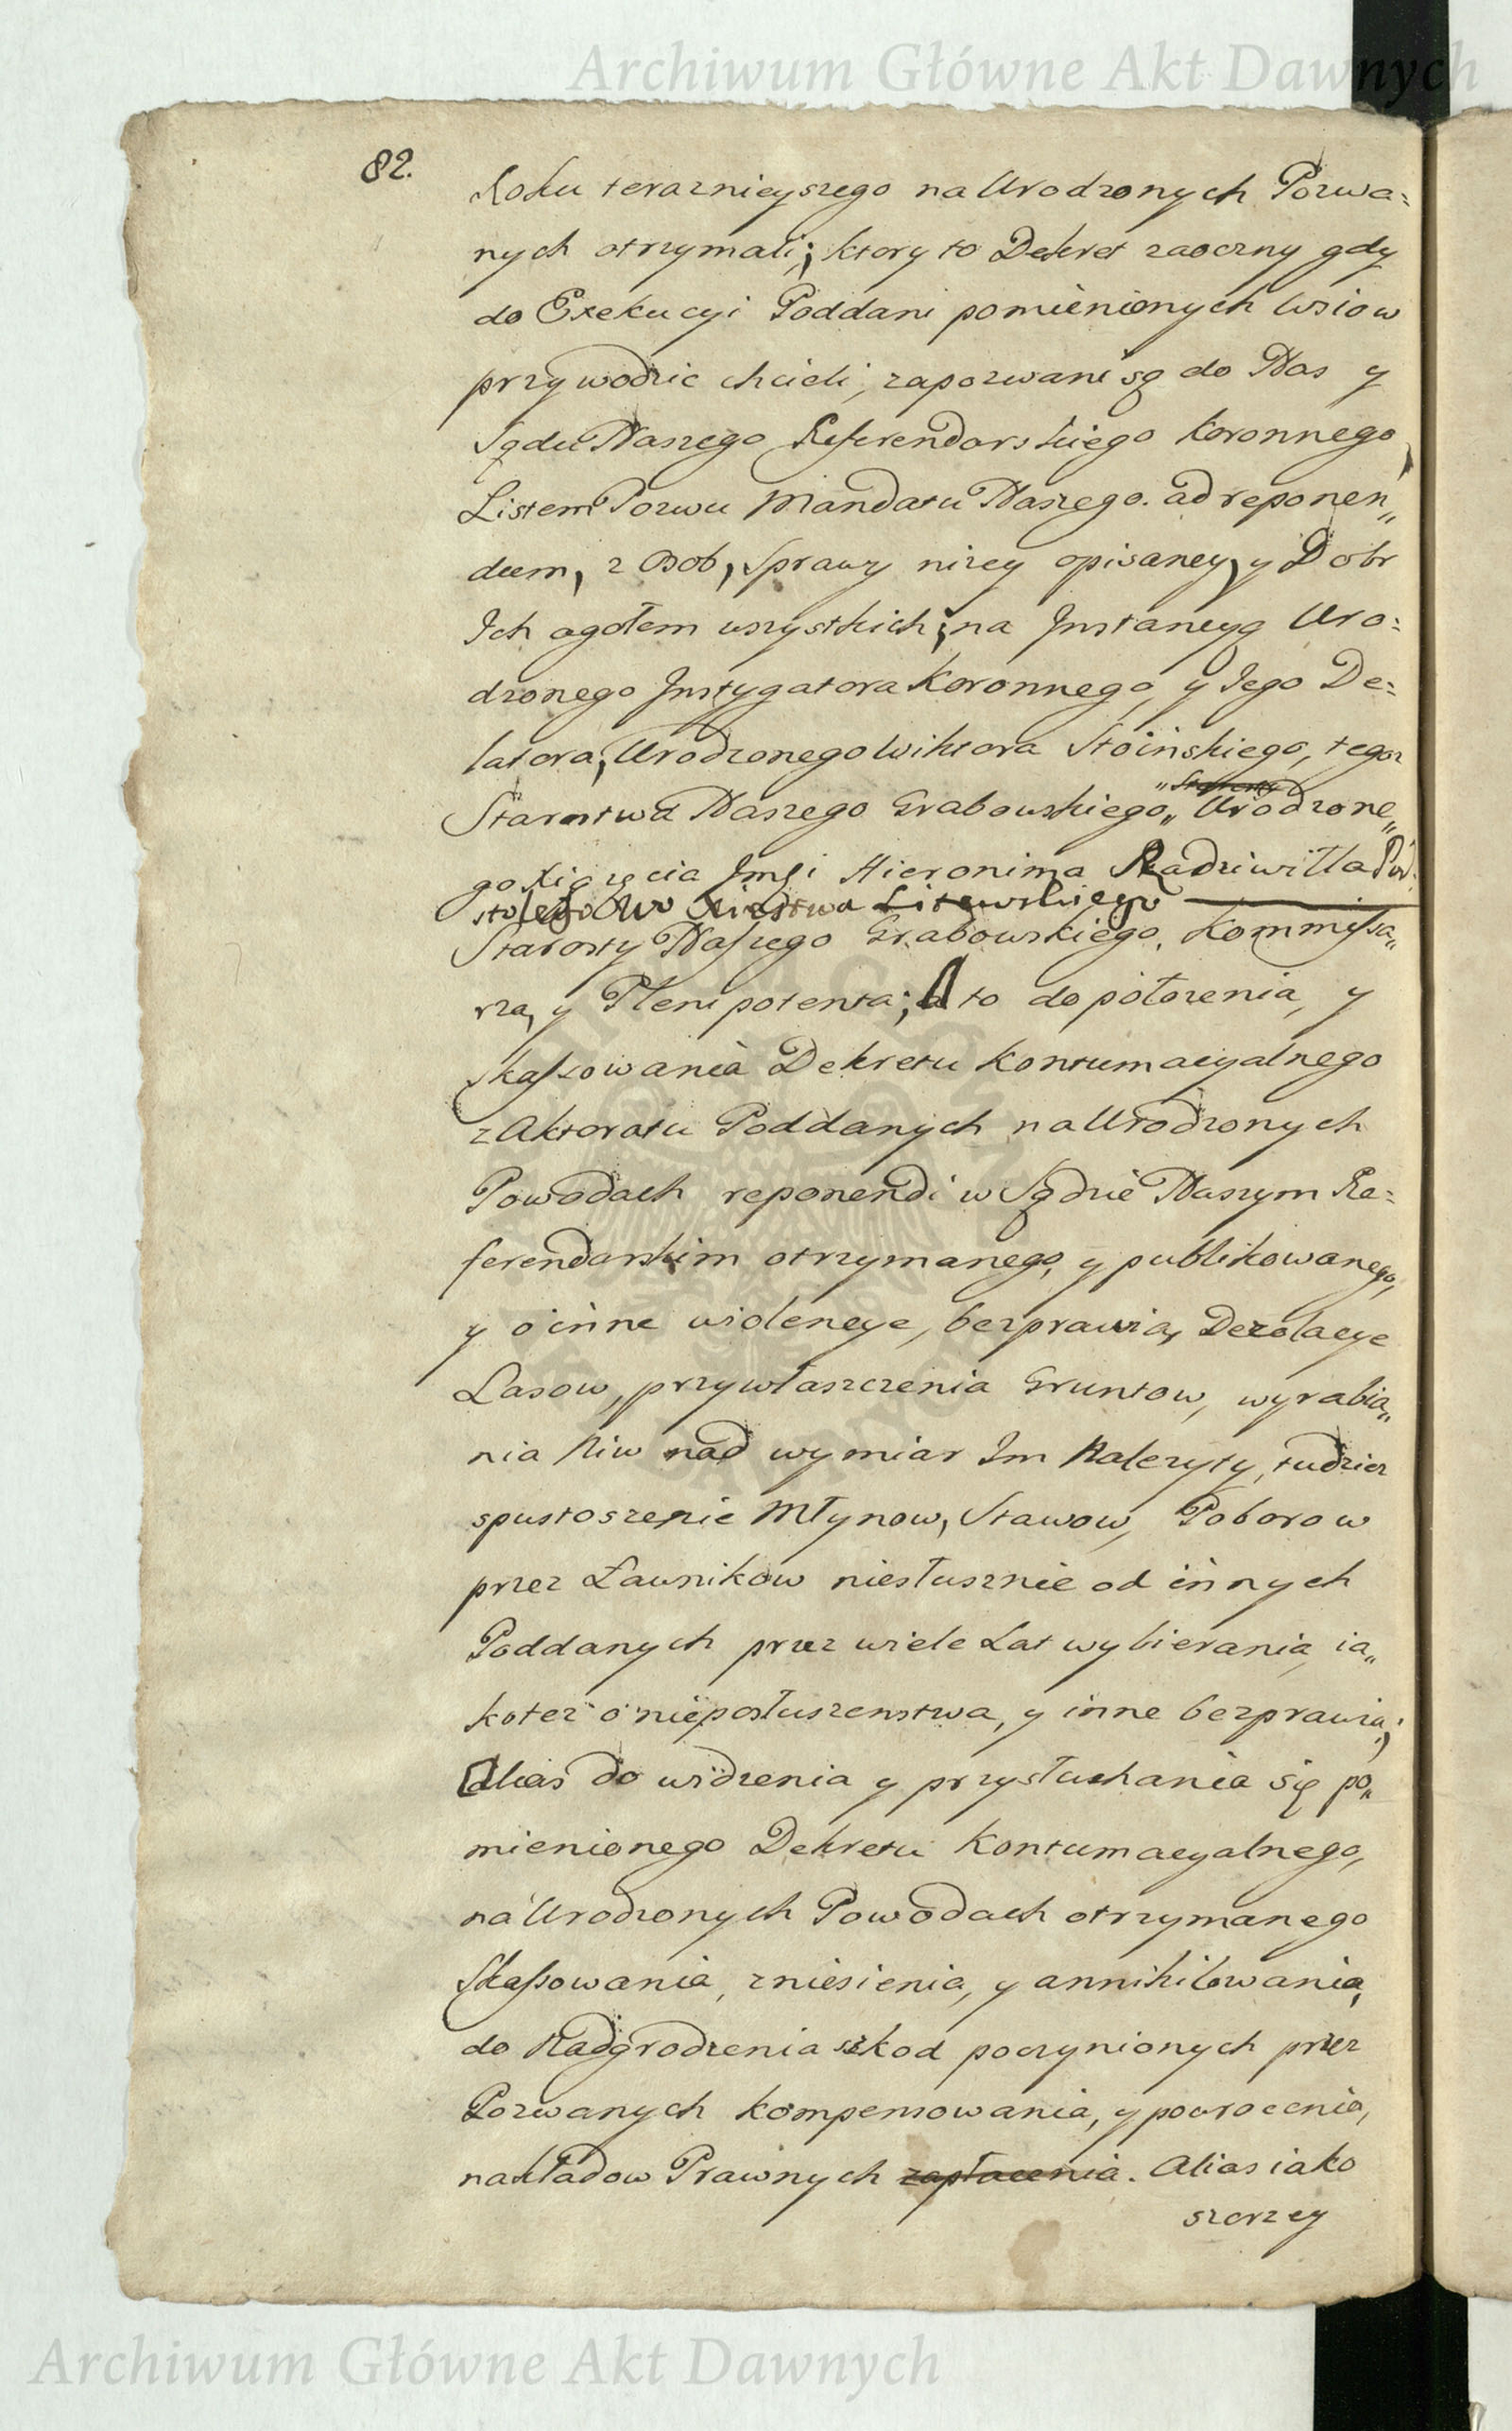 Archiwum Główne Akt Dawnych
82.
Roku teraznieyszego na Urodzonych Pozwa=
nych otrzymali; ktory to Dekret zaoczny gdy
do Exekucyi Poddani pomienionych Wsiow
przywodzic chcieli, zapozwani są do Nas y
Sądu Naszego Referendarskiego Koronnego,
Listem Pozwu Mandatu Naszego. ad reponen„
dum, z Osob, Sprawy nizey opisaney, y Dobr
Ich ogołem wszystkich; na Instancyą Uro=
dzonego Instygatora Koronnego, y Jego De=
latora, Urodzonego Wiktora Stoinskiego, tegoz
„Starosty
Starostwa Naszego Grabowskiego„ Urodzone„
go Xiązęcia Jmći Hieronima Radziwiłła Pod=
stolego Wo Xięstwa Litewskiego
Starosty Naszego Grabowskiego, Kommissa„
rza, y Plenipotenta; A to do położenia, y
skassowania Dekretu Kontumacyalnego
z Aktoratu Poddanych na Urodzonych
Powodach reponendi w Sądzie Naszym Re=
ferendarskim otrzymanego, y publikowanego,
y o inne wiolencye, bezprawia, Dezolacye
Lasow, przywłaszczenia Gruntow, wyrabia„
nia Niw nad wymiar Im Nalezyty, tudziez
spustoszenie Młynow, Stawow, Poborow
przez Ławnikow niesłusznie od innych
Poddanych przez wiele Lat wybierania, ia„
kotez o nieposłuszenstwa, y inne bezprawia;
Alias do widzenia y przysłuchania się po„
mienionego Dekretu Kontumacyalnego,
na Urodzonych Powodach otrzymanego
Skassowania, zniesienia, y annihilowania,
do Nadgrodzenia szkod poczynionych przez
Pozwanych kompensowania, y powrocenia,
nakładow Prawnych zapłacenia. Alias iako
szerzey
Archiwum Główne Akt Dawnych